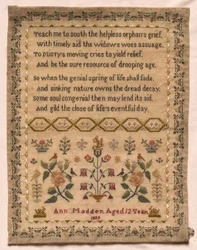 Teach me to sooth the helpless orphans grief,
With timely aid the widows woes assuage,
To Misrys moving cries to yield relief,
And be the sure resource of drooping age.
So when the genial spring of life shall fade,
And sinking nature owns the dread decay,
Some soul congenial then may lend its aid,
And gild the close of lifes eventful day.
Ann Madden Aged 12 Years